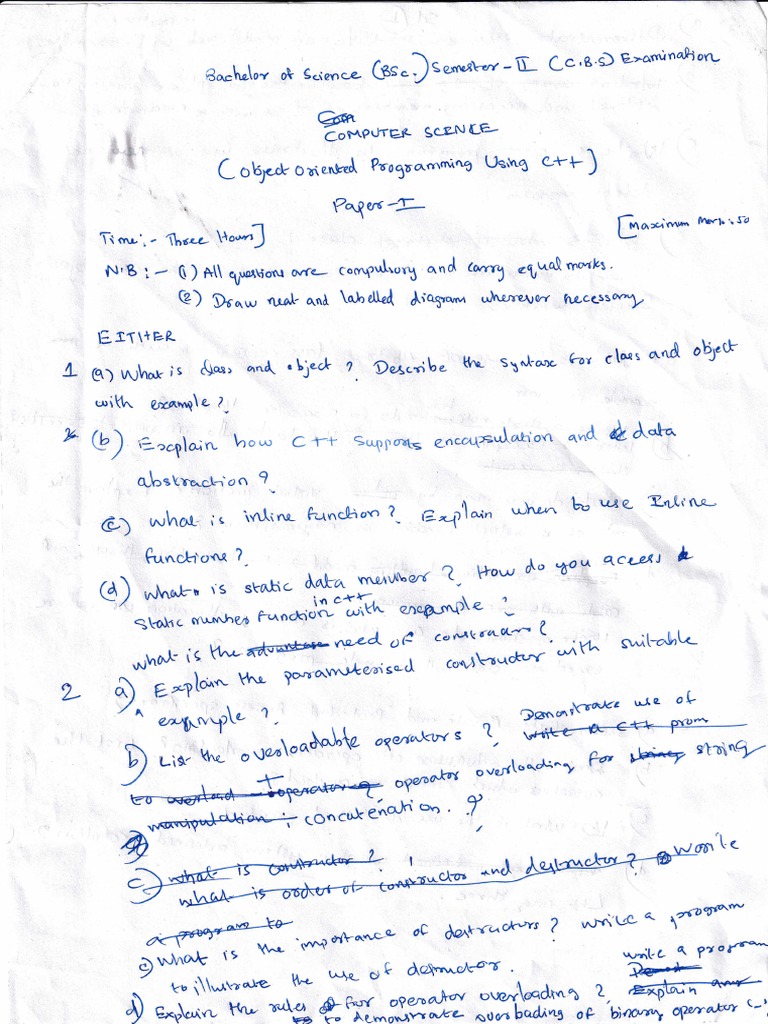 Bachelor of Science (BSc.) Semester-II (C.B.S) Examination
Com
COMPUTER SCENCE
(Object Oriented Programming Using C++)
Paper-I
Time:- Three Hours]
[Maximum Mark: 50
N.B :- (1) All questions are compulsory and carry equal marks.
(2) Draw neat and labelled diagram wherever necessary
EITHER
1 (a) What is class and object ? Describe the syntax for class and object
with example ?
(b) Explain how C++ supports encapsulation and data
abstraction ?
(c) What is inline function ? Explain when to use Inline
functions ?
(d) what is static data member ? How do you access
static member function in C++ with example ?
what is the advantage need of constructor ?
2 a) Explain the parameterised constructor with suitable
example ?
b) List the overloadable operators ? Demonstrate use of
write a C++ prom
to overload + operator operator overloading for string string
manipulation : concatenation. ?
c) what is constructor ?
what is order of constructor and destructor ? Write
a program to
c) What is the importance of destructors ? Write a program
to illustrate the use of destructor.
d) Explain the rules for operator overloading ? write a program
Explain any
to demonstrate overloading of binary operator (-)